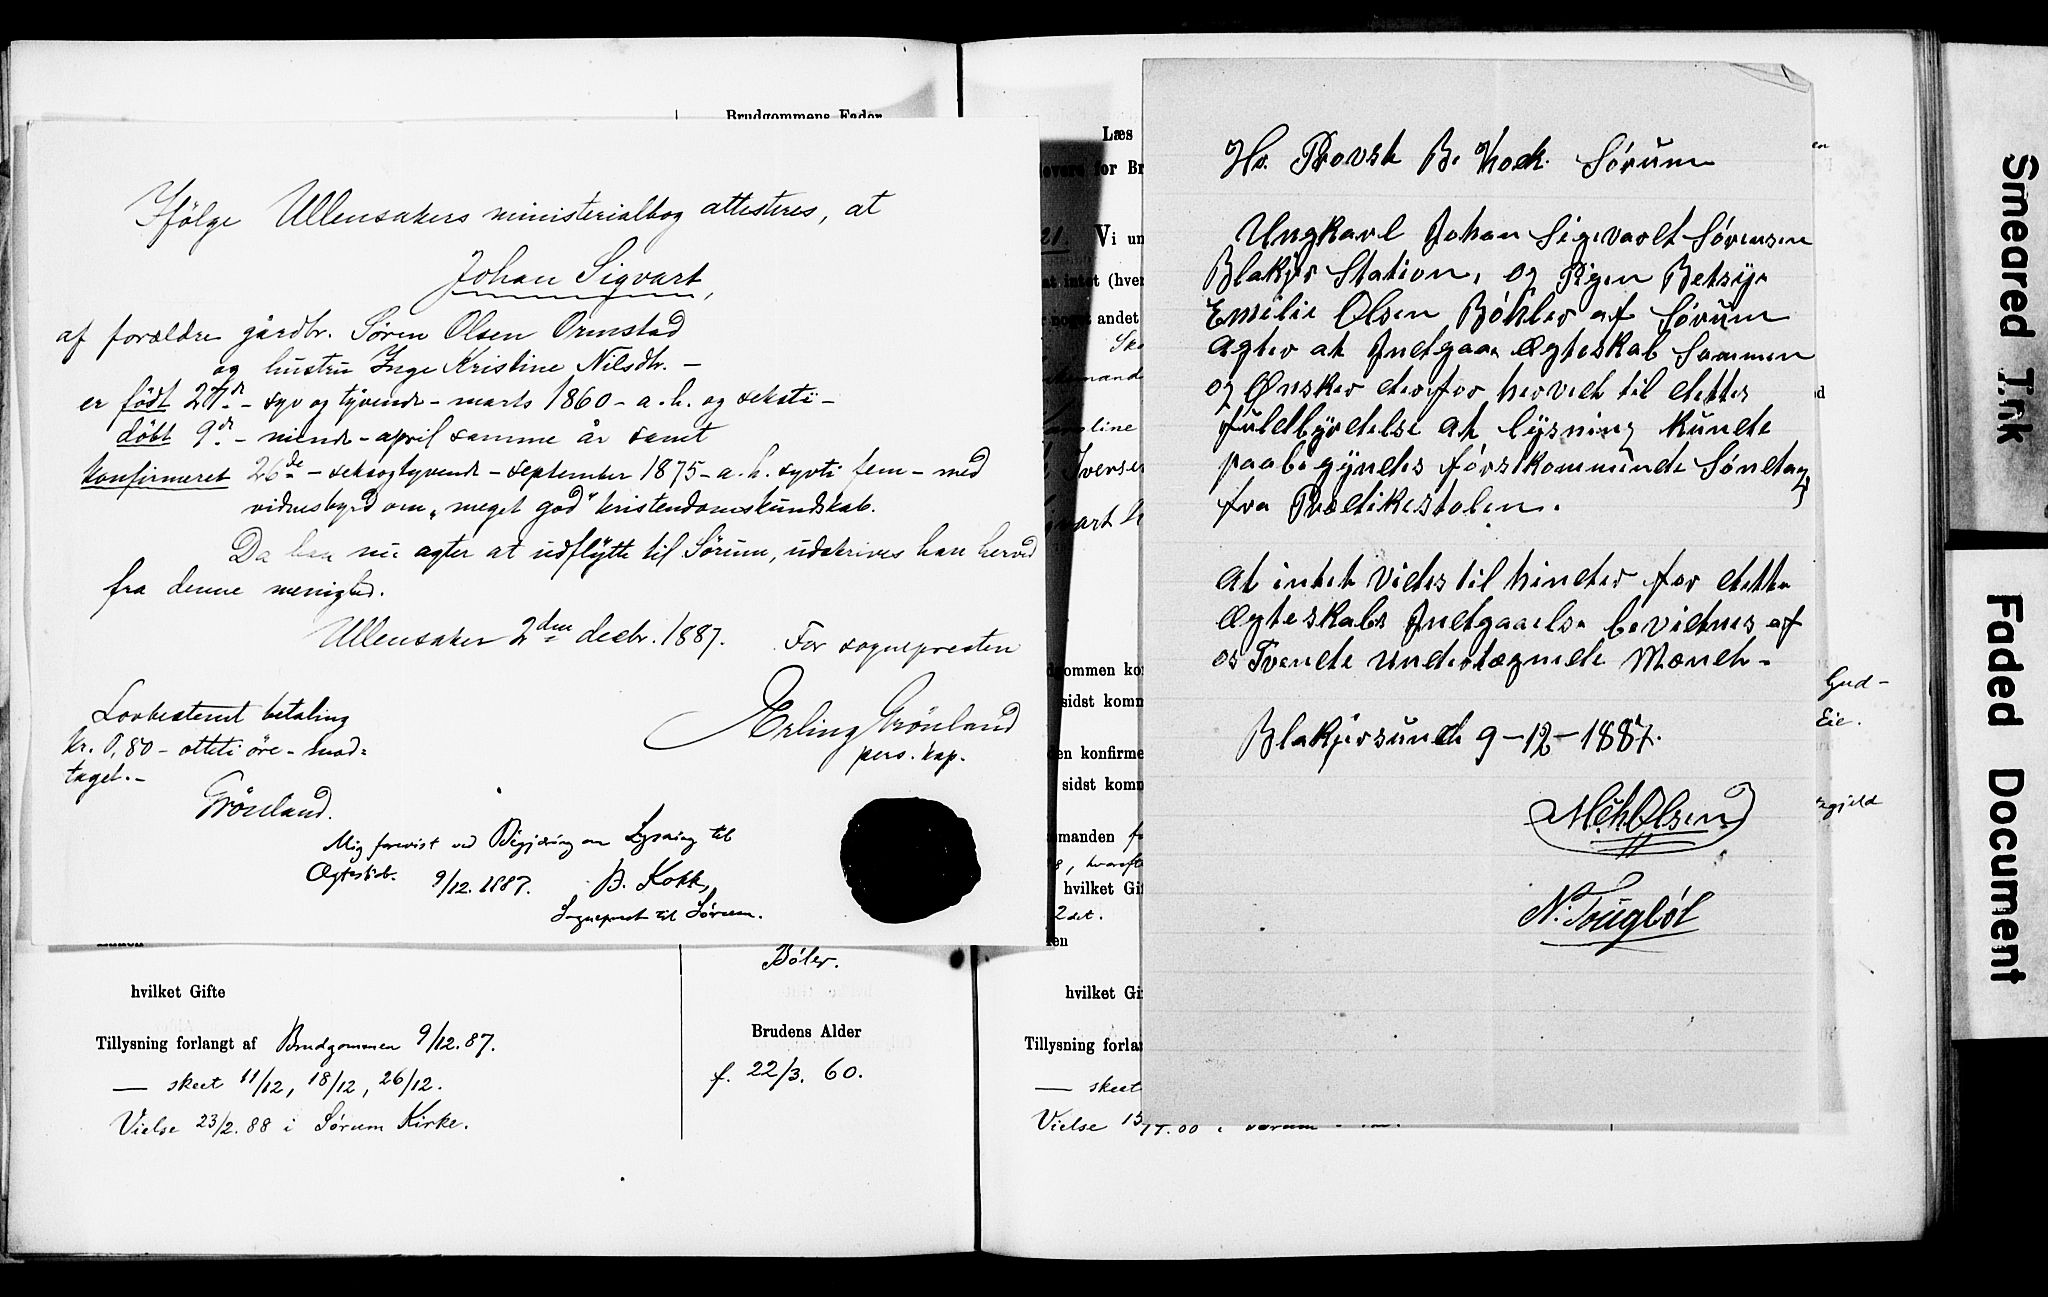 Brudgommens Fader
Ifölge Ullensakers ministerialbog attesteres, at
Johan Sigvart,
af forældre gårdbr. Søren Olsen Ormstad
og hustru Inge Kristine Nilsdtr. –
er født 27de – syv og tyvende – marts 1860 – a. h. og seksti –
döbt 9de – niende – april samme år samt
konfirmeret 26de – seksogtyvende – september 1875 – a. h. sytti fem – med
vidnesbyrd om „meget god" kristendomskundskab.
Da han nu agter at udflytte til Sørum, udskrives han herved
fra denne menighed.
Ullensaker 2den decbr. 1887.
For sognepresten
Erling Grönland
pers. kap.
Lovbestemt betaling
kr. 0,80 – otteti öre – mod=
taget. –
Grönland.
Mig forevist ved Begjæring om Lysning til
Ægteskab. 9/12. 1887. B. Kokk,
Sogneprest til Sørum.
Bøler.
hvilket Gifte
Tillysning forlangt af Brudgommen 9/12. 87.
— skeet 11/12, 18/12, 26/12.
Vielse 23/2. 88 i Sørum Kirke.
Brudens Alder
f. 22/3. 60.
Læs
for Br
21. Vi un
(hver
andet
Iversen
sidst komm
den konfirme
sidst komm
manden
hvilket Gi
2det.
hvilket Gi
Tillysning forla
— skeet
Vielse 15
Hr. Provst B. Kock. Sørum
Ungkarl Johan Sigevardt Sørensen
Blakjer Station, og Pigen Betsÿe
Emilie Olsen Bøhler af Sørum
agter at Indgaa Ægteskab Sammen
og Ønsker derfor herved til dettes
fuldbÿrdelse at lÿsning kunde
paabegÿndes førstkommende Søndag
fra Prædikestolen.
At intet vides til hinder for dette
Ægteskabs Indgaaelse bevidnes af
os Tvende undertegnede Mænd –
Blakjersund 9–12–1887.
M Ch Olsen
N. Trugbøl
Gud-
Eie.
Smeared Ink
Faded Document